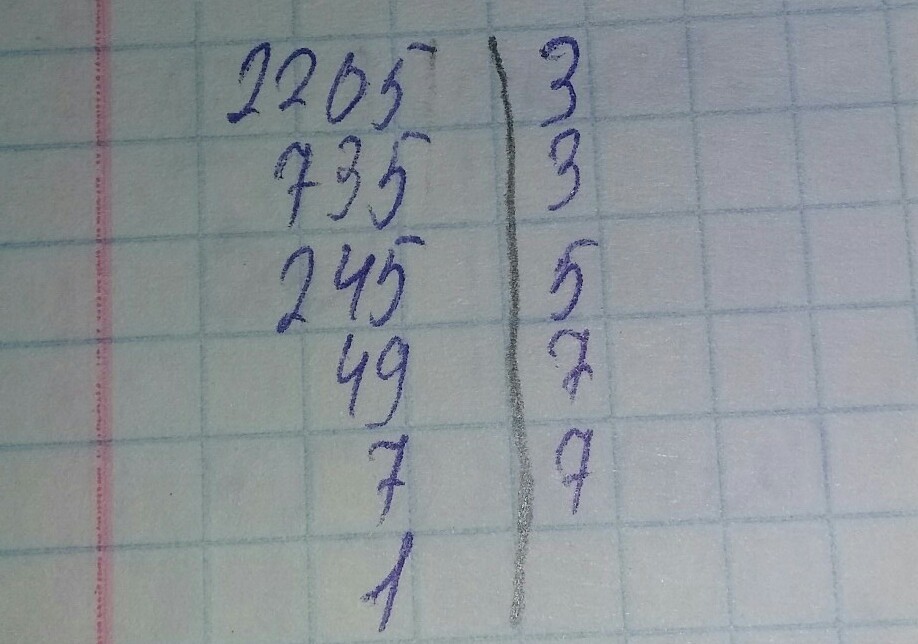 2205 | 3
735 | 3
245 | 5
49 | 7
7 | 7
1 |